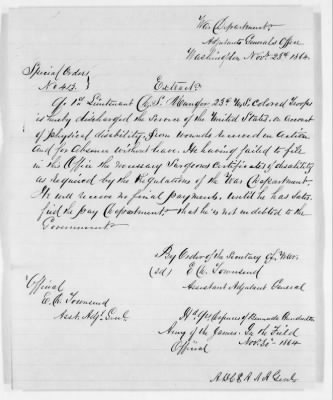 War Department.
Adjutant General's Office
Washington Novr. 28th 1864.
Special Orders
No. 413.
Extract
1st Lieutenant Chs. S. Manger 23d U.S. Colored Troops
is hereby discharged the service of the United States, on account
of physical disability, from wounds received in action
and for absence without leave. He having failed to file
in this Office the necessary Surgeons Certificate of disability
as required by the Regulations of the War Department.
He will receive no final payments, until he has satis-
fied the pay Department, that he is not indebted to the
Government.
By Order of the Secretary of War.
E. D. Townsend
Assistant Adjutant General
Official
E. D. Townsend
Asst. Adjt. Genl.
Hd. Qrs. Defences of Bermuda Hundred
Army of the James. In the Field
Official Nov. 30th 1864
A A A Genl.